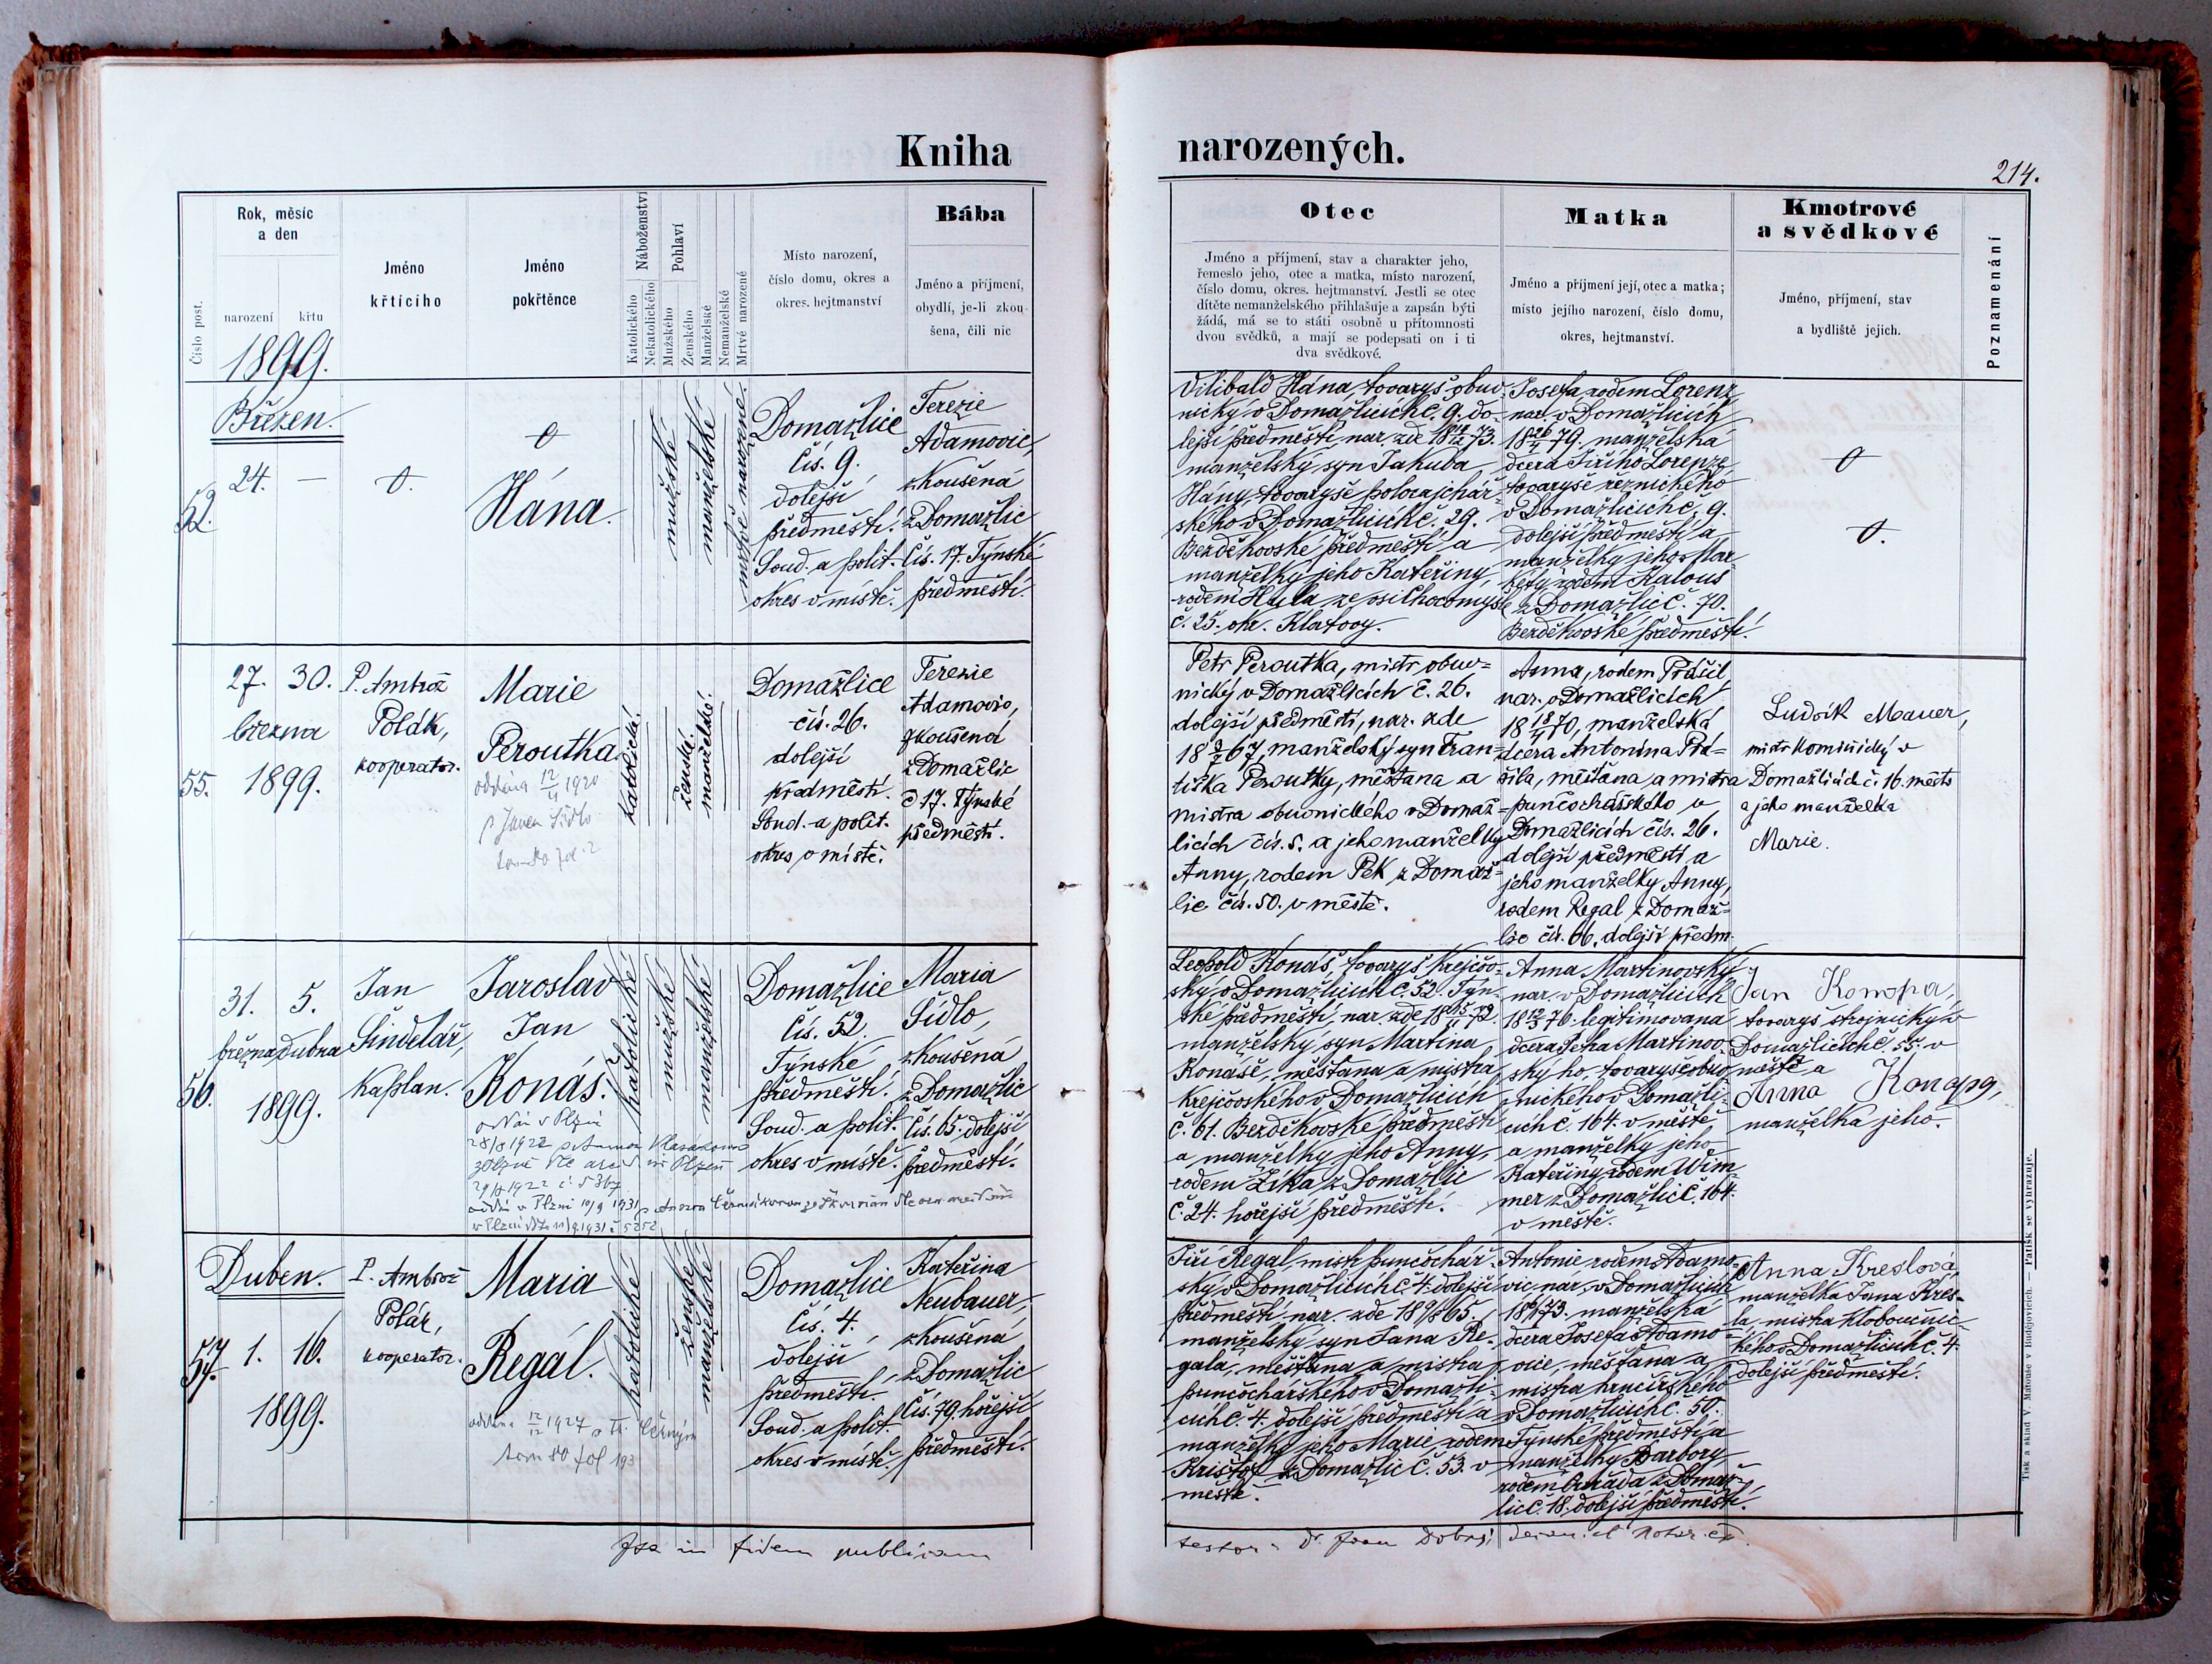 Kniha
narozených.
214.
Číslo post.
Rok, měsíc
a den
narození
křtu
1899.
Jméno
křtícího
Jméno
pokřtěnce
Náboženství
Katolického
Nekatolického
Pohlaví
Mužského
Ženského
Manželské
Nemanželské
Mrtvé narozené
Místo narození,
číslo domu, okres a
okres. hejtmanství
Bába
Jméno a příjmení,
obydlí, je-li zkou-
šena, čili nic
Otec
Jméno a příjmení, stav a charakter jeho,
řemeslo jeho, otec a matka, místo narození,
číslo domu, okres. hejtmanství. Jestli se otec
dítěte nemanželského přihlašuje a zapsán býti
žádá, má se to státi osobně u přítomnosti
dvou svědků, a mají se podepsati on i ti
dva svědkové.
Matka
Jméno a příjmení její, otec a matka;
místo jejího narození, číslo domu,
okres, hejtmanství.
Kmotrové
a svědkové
Jméno, příjmení, stav
a bydliště jejich.
Poznamenání
Březen.
24. —
Hána.
mužské
manželské
mrtvě narozené.
Domažlice
čís. 9.
dolejší
předměstí.
Soud. a polit.
okres v místě.
Terezie
Adamovic,
zkoušená
z Domažlic
čís. 17. Týnské
předměstí.
Vilibald Hána, tovaryš obuv-
nický v Domažlicích č. 9. do-
lejší předměstí, nar. zde 18 73.
manželský syn Jakuba
Hány, tovaryše
ského v Domažlicích č. 29.
Bezděkovské předměstí a
manželky jeho Kateřiny,
rodem Hula ze vsi Chocomyšle
č. 25. okr. Klatovy.
Josefa rodem Lorenz
nar. v Domažlicích
18 79. manželská
dcera Jiřího Lorenze,
tovaryše řeznického
v Domažlicích č. 9.
dolejší předměstí a
manželky jeho Mar-
kéty rodem Kalous
z Domažlic č. 70.
Bezděkovské předměstí.
55.
27. 30.
března
1899.
P. Ambrož
Polák,
kooperator.
Marie
Peroutka
oddána 12/4 1920
katolické.
ženské.
manželské.
Domažlice
čís. 26.
dolejší
předměstí.
Soud. a polit.
okres v místě.
Terezie
Adamovic,
zkoušená
z Domažlic
č 17. Týnské
předměstí.
Petr Peroutka, mistr obuv-
nický v Domažlicích č. 26.
dolejší předměstí, nar. zde
18 67, manželský syn Fran-
tiška Peroutky, měšťana a
mistra obuvnického v Domaž-
licích čís. 5. a jeho manželky
Anny, rodem Pek z Domaž-
lic čís. 50. v městě.
Anna, rodem Prášil,
nar. v Domažlicích
18 70, manželská
dcera Antonína Prá-
šila, měšťana a mistra
punčochářského v
Domažlicích čís. 26.
dolejší předměstí a
jeho manželky Anny,
rodem Regal z Domaž-
lic čís. 66. dolejší předm.
Ludvík Mauer,
mistr kominický v
Domažlicích č. 16. město
a jeho manželka
Marie.
56.
31. 5.
března dubna
1899.
Jan
Šindelář,
kaplan.
Jaroslav
Jan
Konáš.
katolické
mužské
manželské
Domažlice
čís. 52.
Týnské
předměstí.
Soud. a polit.
okres v místě.
Maria
Šídlo,
zkoušená
z Domažlic
čís. 65. dolejší
předměstí.
Leopold Konáš, tovaryš krejčov-
ský v Domažlicích č. 52. Týn-
ské předměstí, nar. zde 18 72.
manželský syn Martina
Konáše, měšťana a mistra
krejčovského v Domažlicích
č. 61. Bezděkovské předměstí
a manželky jeho Anny,
rodem Žika z Domažlic
č. 24. hořejší předměstí.
Anna Martinovský
nar. v Domažlicích
18 76 legitimovaná
dcera Petra Martinov-
ského, tovaryše obuv-
nického v Domažli-
cích č. 164. v městě
a manželky jeho
Kateřiny, rodem Wim-
mer z Domažlic č. 164.
v městě.
Jan Konopa,
tovaryš strojnický v
Domažlicích č. 55. v
městě a
Anna Konopa,
manželka jeho.
Duben.
57.
1. 16.
1899.
P. Ambrož
Polák,
kooperator.
Maria
Regál.
oddána 12/12 1927
katolické
ženské
manželské
Domažlice
čís. 4.
dolejší
předměstí.
Soud. a polit.
okres v místě.
Kateřina
Neubauer,
zkoušená
z Domažlic
čís. 79. hořejší
předměstí.
Jiří Regal, mistr punčochář-
ský v Domažlicích č. 4. dolejší
předměstí, nar. zde 18 65,
manželský syn Jana Re-
gala, měšťana a mistra
punčochářského v Domažli-
cích č. 4. dolejší předměstí a
manželky jeho Marie, rodem
Krištof z Domažlic č. 53. v
městě.
Antonie rodem Adamo-
vic, nar. v Domažlicích
18 73. manželská
dcera Josefa Adamo-
vice, měšťana a
mistra hrnčířského
v Domažlicích č. 50.
Týnské předměstí a
manželky Barbory
z Domaž-
lic č. 18. dolejší předměstí.
Anna Kreslová,
manželka Jana Kres-
la, mistra kloboučnic-
kého v Domažlicích č. 4.
dolejší předměstí.
in fidem publicam
Tisk a sklad V. Matouše v Budějovicích. — Patisk se vyhrazuje.